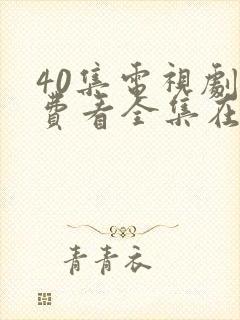 40集電視劇
費看全集在
青青衣